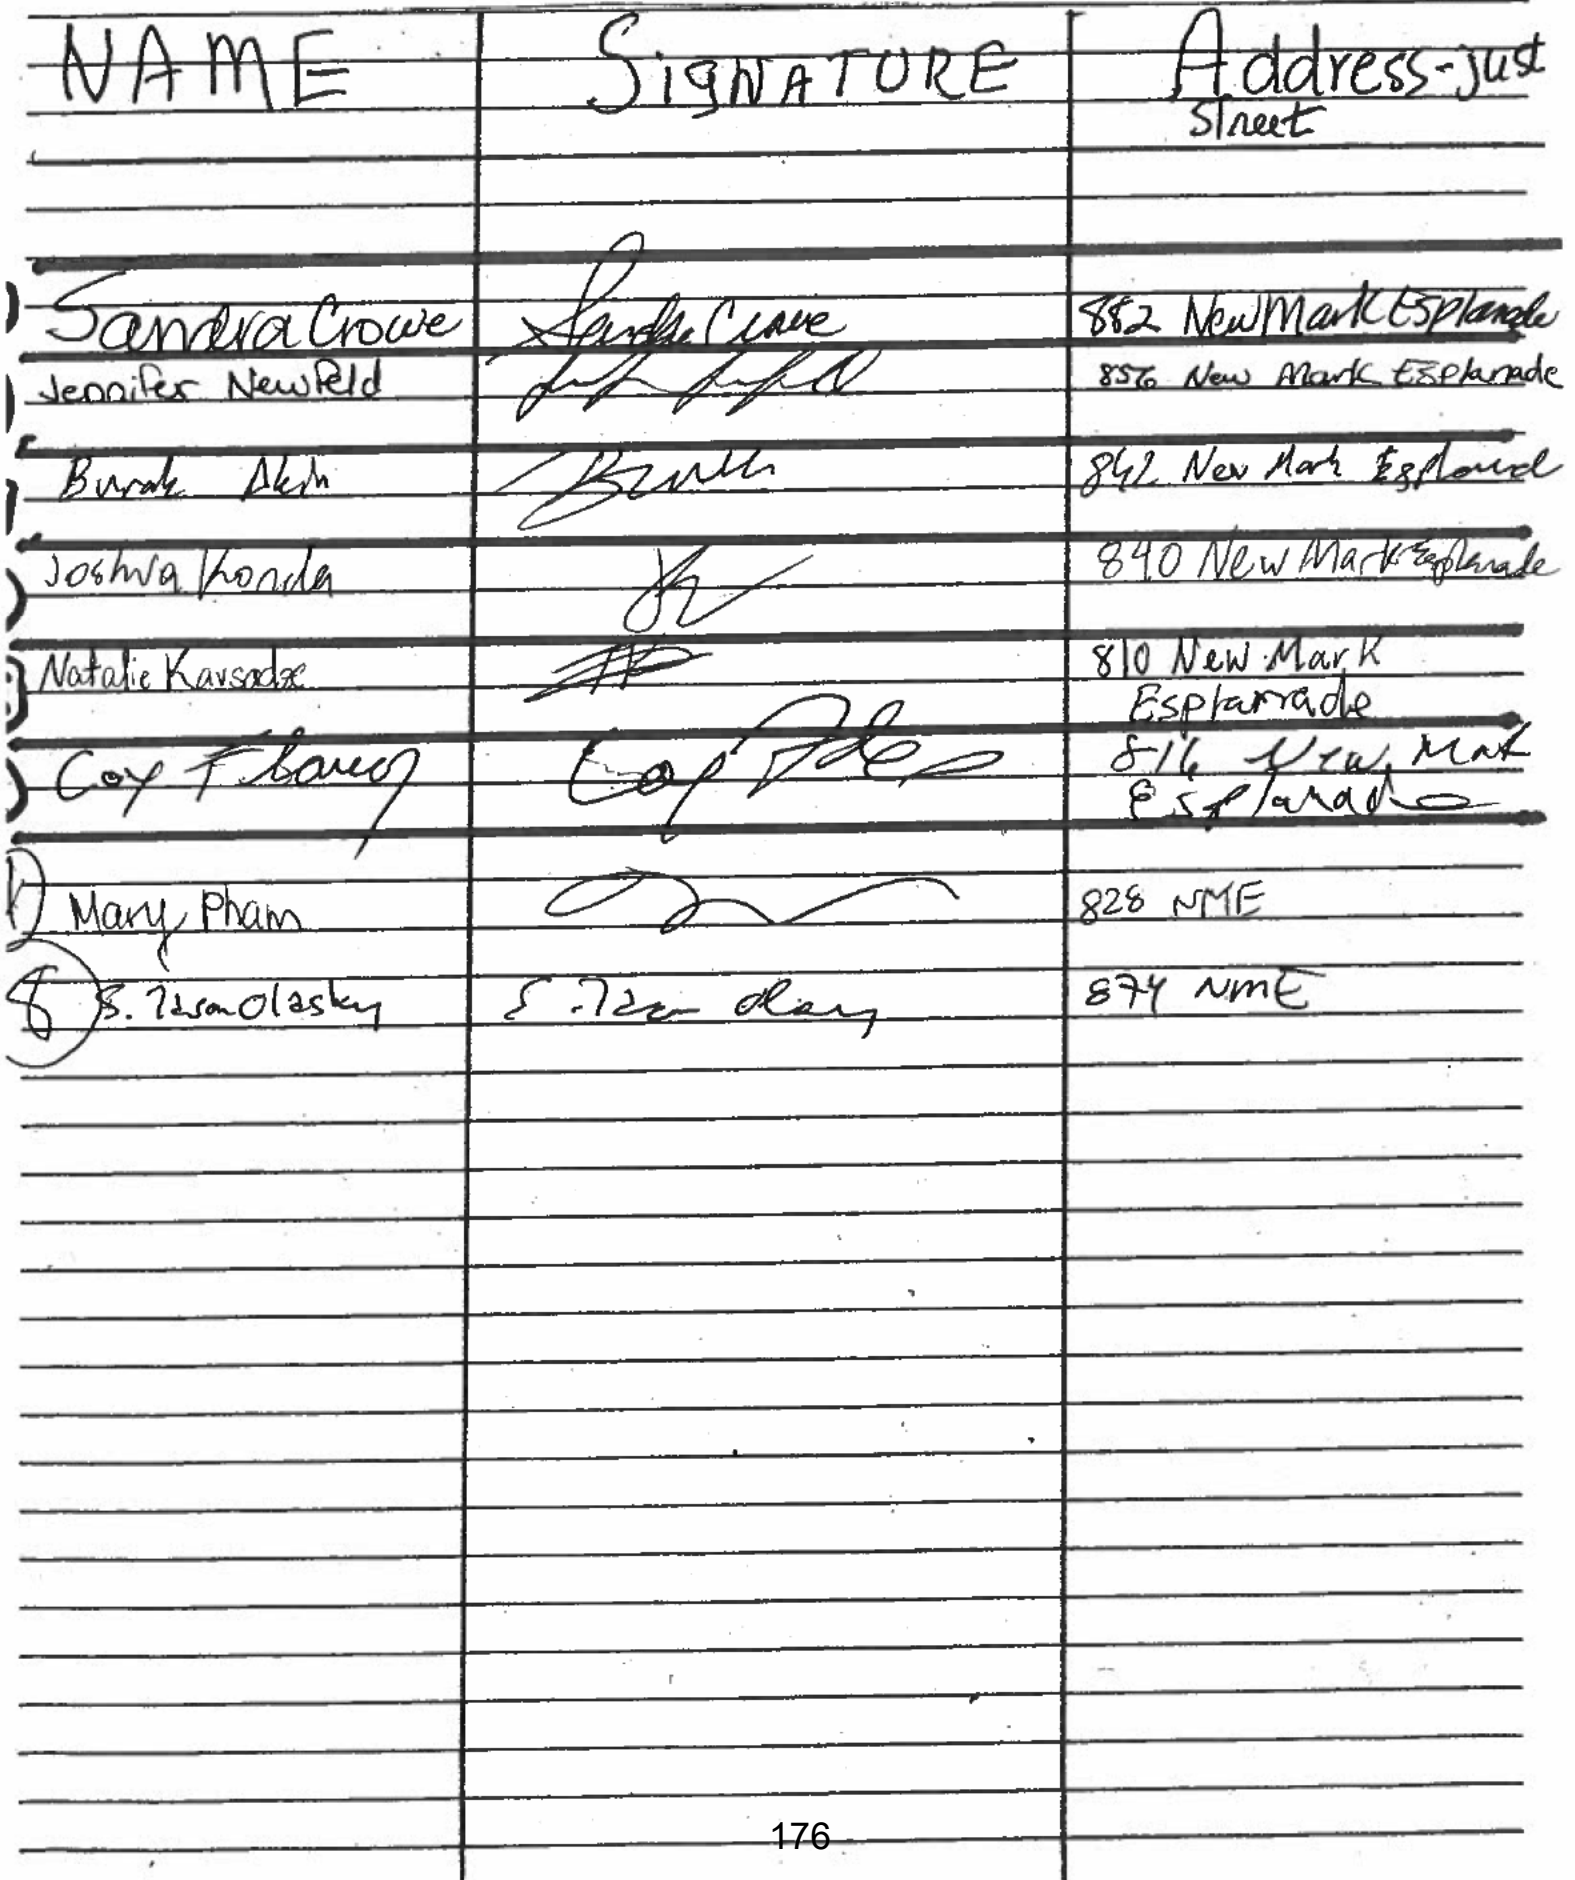 NAME SIGNATURE Address-just
Street
Sandra Crowe Sandra Crowe 882 New Mark Esplanade
Jennifer Newfeld 856 New Mark Esplanade
Burak Akin Burak 842 New Mark
Joshua Konda 840 New Mark Esplanade
Natalie Karsadze 810 New Mark
Esplanade
Coy 816 New Mark
Esplanade
Mary Pham 828 NME
8 S. Jason Olasky S. Jason 874 NME
176